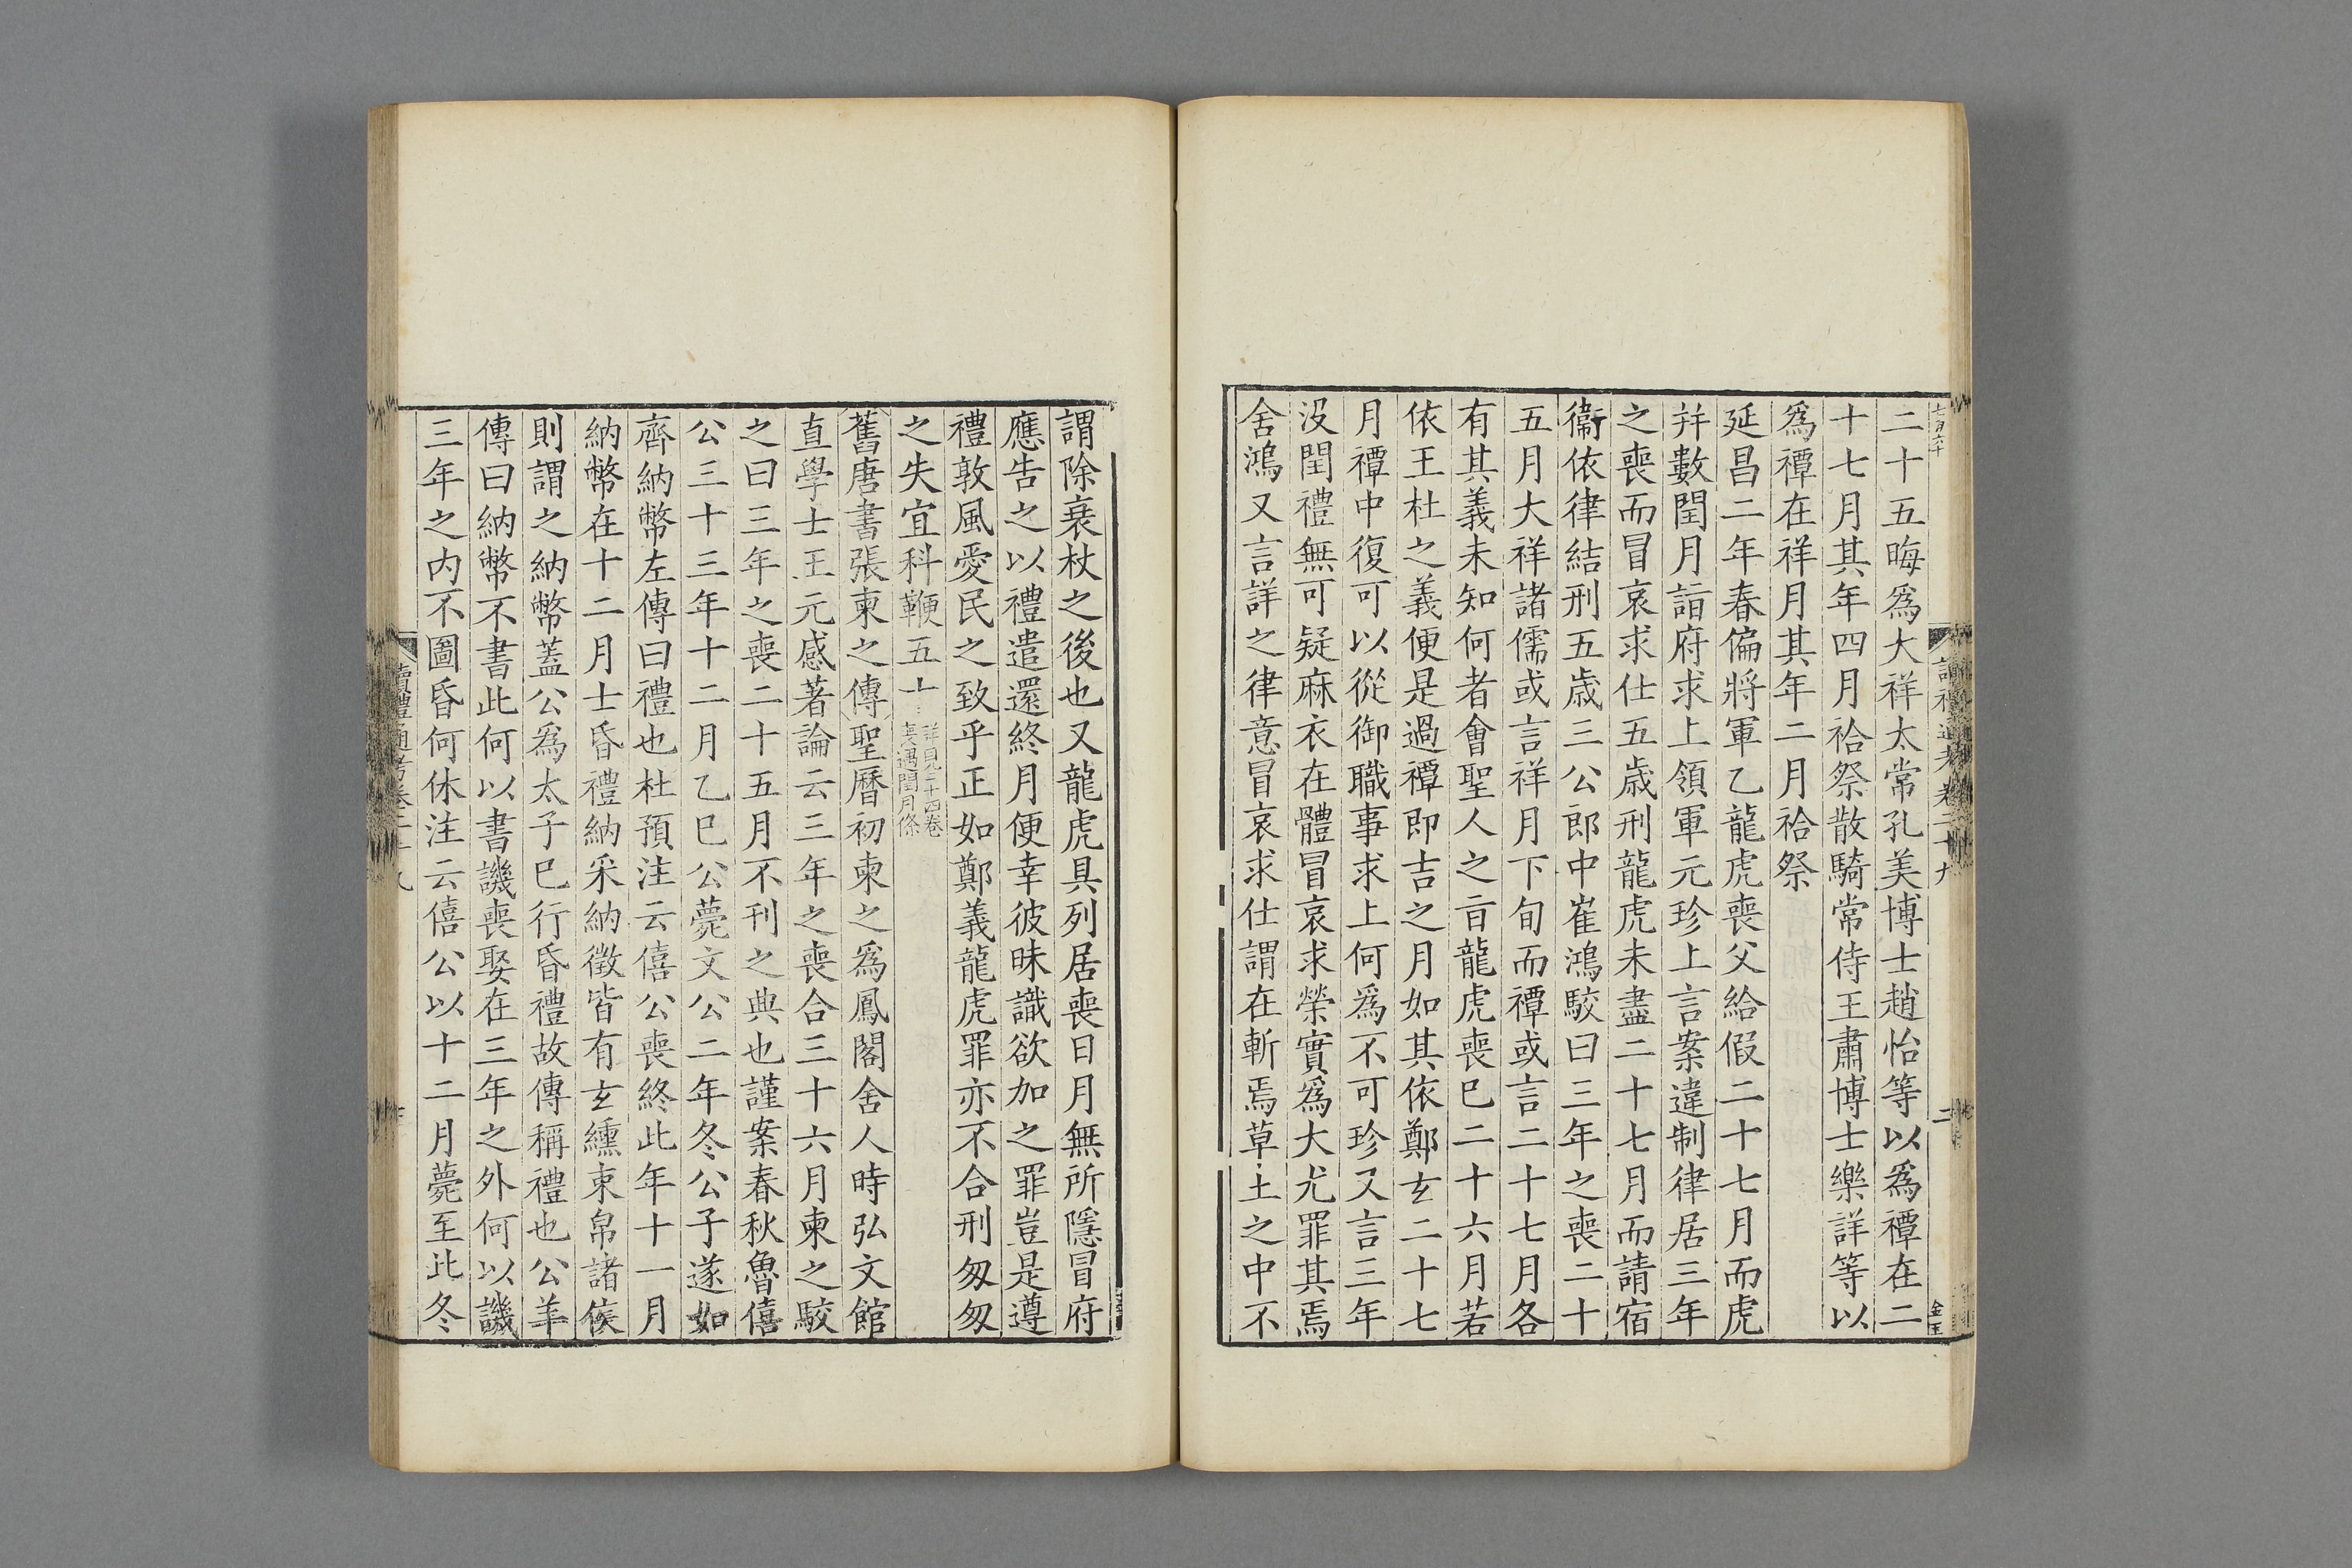 讀禮通考卷二十九
二
二十五晦爲大祥太常孔美博士趙怡等以爲禫在二
十七月其年四月祫祭散騎常侍王肅博士樂詳等以
爲禫在祥月其年二月祫祭
延昌二年春偏將軍乙龍虎喪父給假二十七月而虎
并數閏月詣府求上領軍元珍上言案違制律居三年
之喪而冒哀求仕五歲刑龍虎未盡二十七月而請宿
衞依律結刑五歲三公郎中崔鴻駮曰三年之喪二十
五月大祥諸儒或言祥月下旬而禫或言二十七月各
有其義未知何者會聖人之㫖龍虎喪巳二十六月若
依王杜之義便是過禫即吉之月如其依鄭玄二十七
月禫中復可以從御職事求上何爲不可珍又言三年
没閏禮無可疑麻衣在體冒哀求榮實爲大尤罪其焉
舍鴻又言詳之律意冒哀求仕謂在斬焉草土之中不
謂除衰杖之後也又龍虎具列居喪日月無所隱冒府
應告之以禮遣還終月便幸彼昧識欲加之罪豈是遵
禮敦風愛民之致乎正如鄭義龍虎罪亦不合刑匆匆
之失宜科鞭五十詳見三十四卷
喪遇閏月條
舊唐書張柬之傳聖曆初柬之爲鳳閣舍人時弘文館
直學士王元感著論云三年之喪合三十六月柬之駮
之曰三年之喪二十五月不刊之典也謹案春秋魯僖
公三十三年十二月乙巳公薨文公二年冬公子遂如
齊納幣左傳曰禮也杜預注云僖公喪終此年十一月
納幣在十二月士昏禮納采納徵皆有玄纁束帛諸侯
則謂之納幣葢公爲太子巳行昏禮故傳稱禮也公羊
傳曰納幣不書此何以書譏喪娶在三年之外何以譏
三年之内不圖昏何休注云僖公以十二月薨至此冬